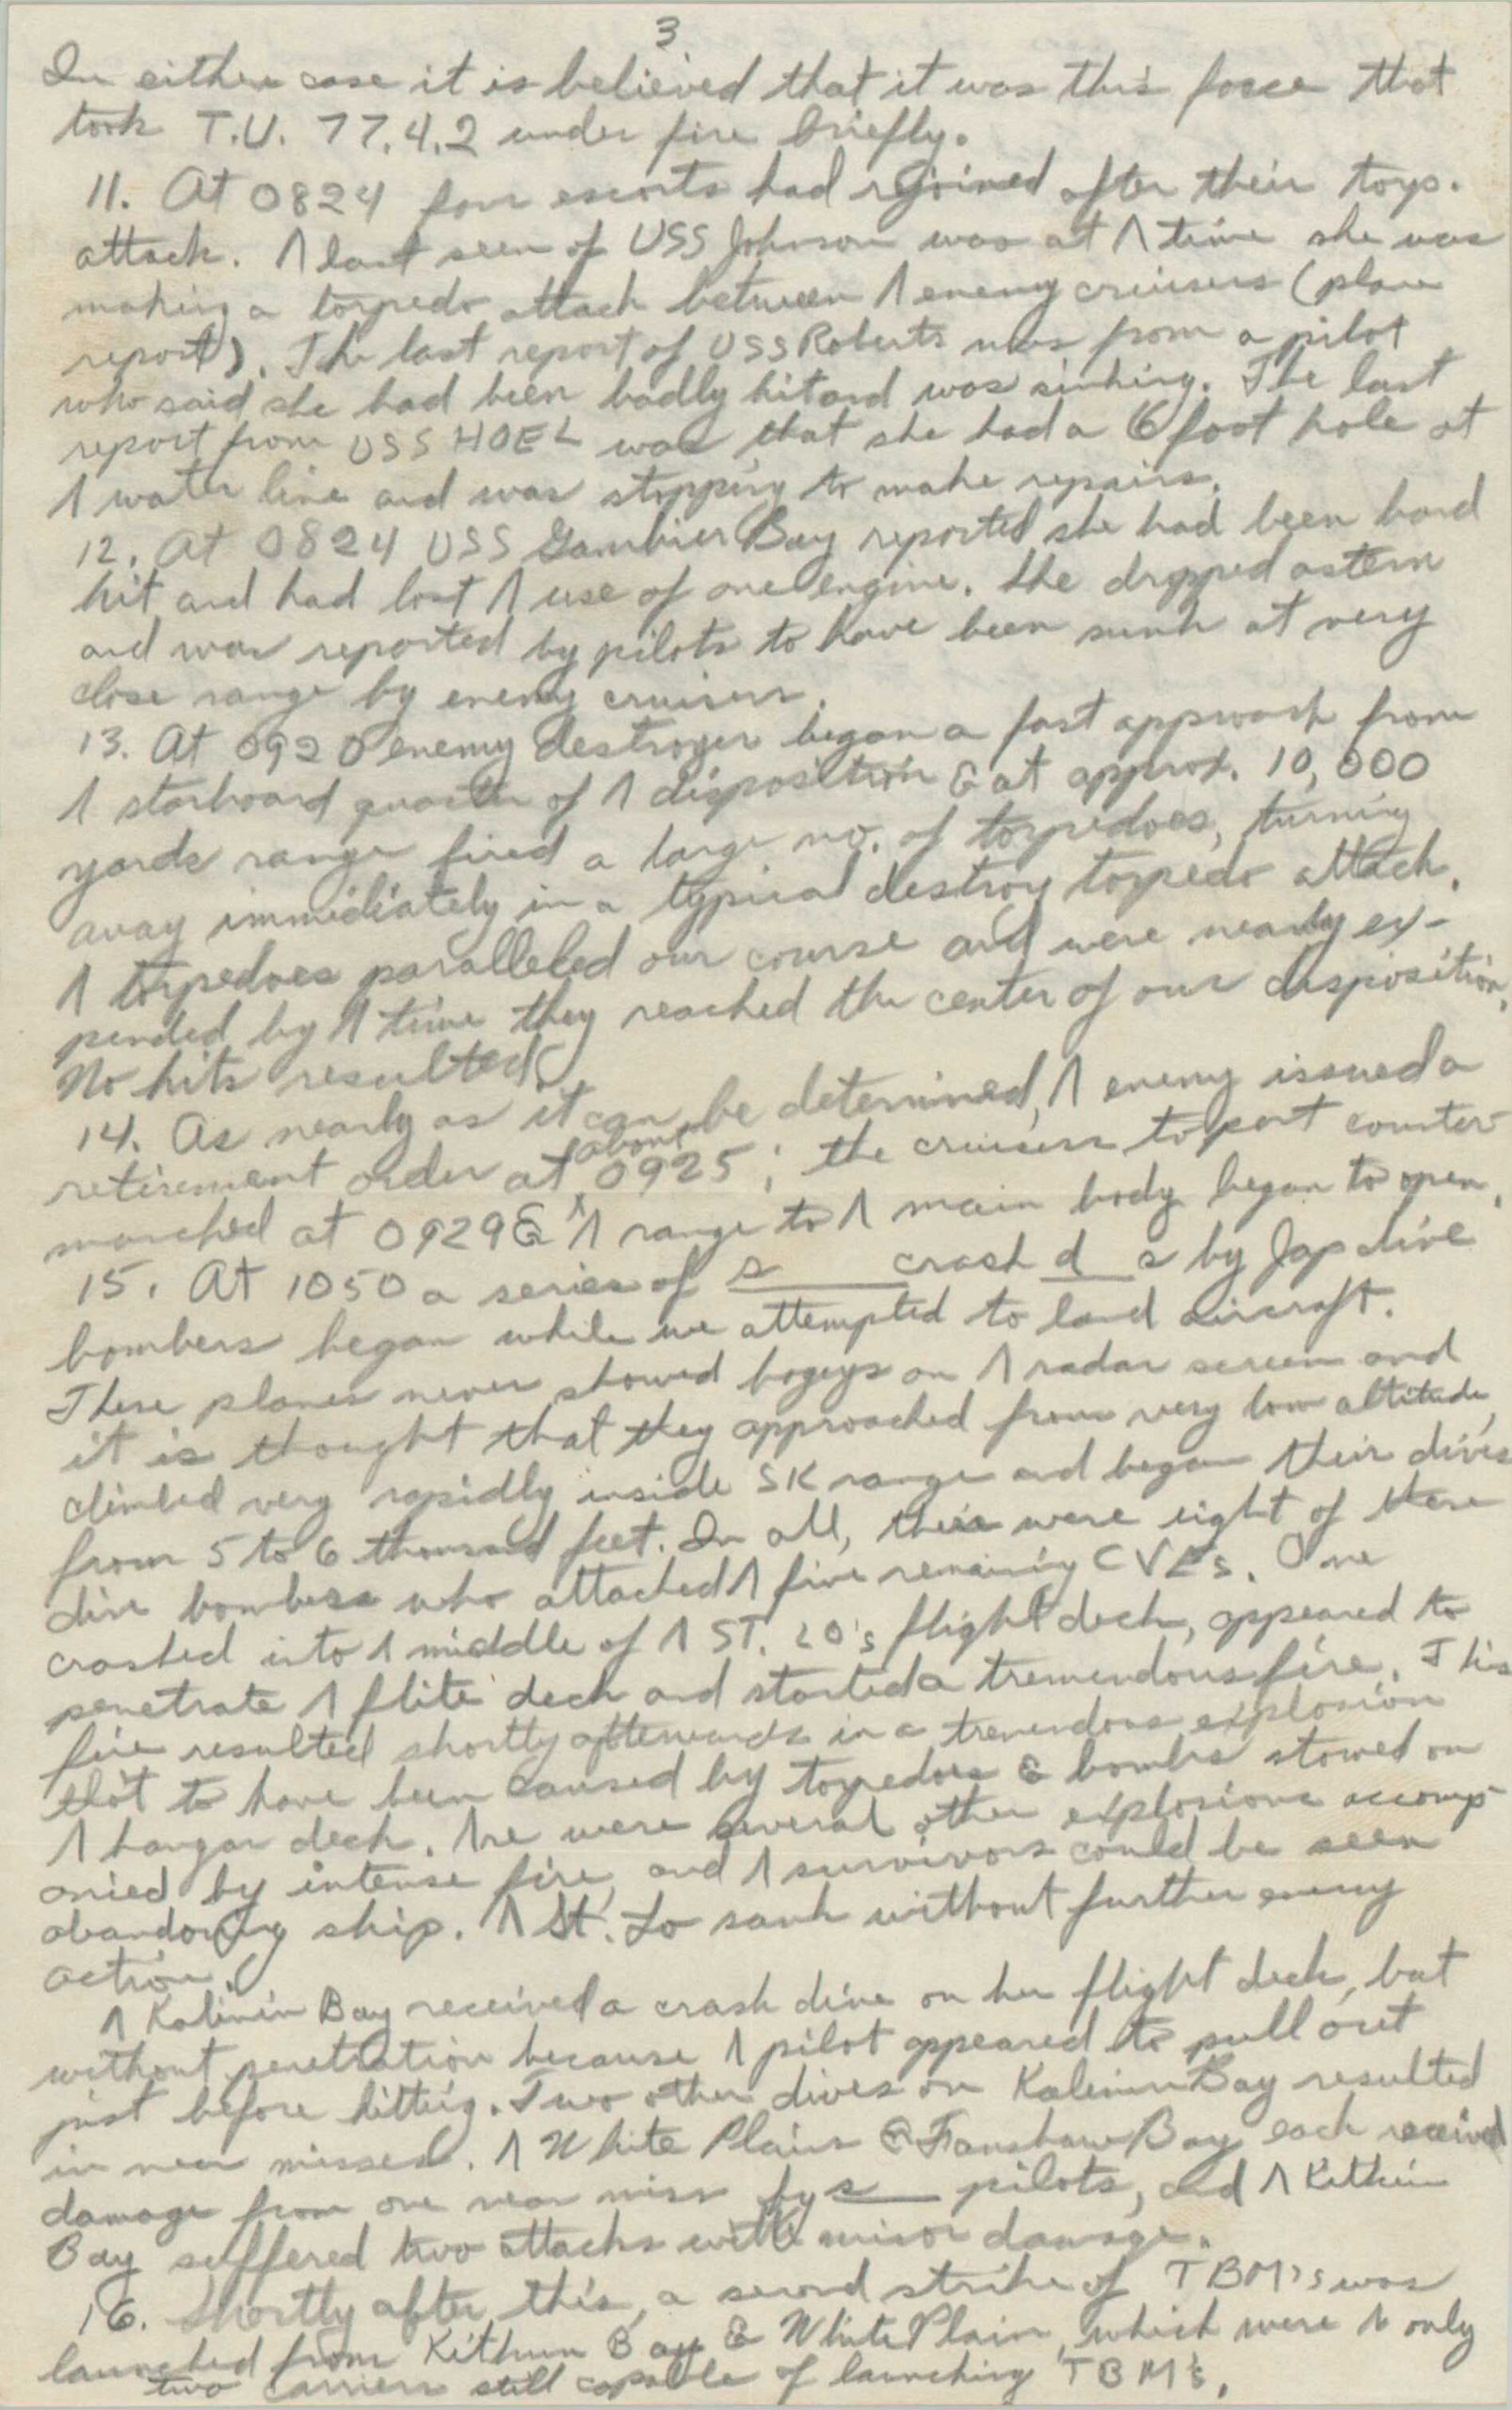 3
In either case it is believed that it was this force that
took T.U. 77.4.2 under fire briefly.
11. At 0824 four escorts had rejoined after their torp.
attack. ^ last seen of USS Johnson was at ^ time she was
making a torpedo attack between ^ enemy cruisers (plane
report). The last report of USS Roberts was from a pilot
who said she had been badly hit and was sinking. The last
report from USS HOEL was that she had a 6 foot hole at
^ water line and was stopping to make repairs.
12. At 0824 USS Gambier Bay reported she had been hard
hit and had lost ^ use of one engine. She dropped astern
and was reported by pilots to have been sunk at very
close range by enemy cruisers.
13. At 0920 enemy destroyer began a fast approach from
^ starboard quarter of ^ disposition & at approx. 10,000
yards range fired a large no. of torpedoes, turning
away immediately in a typical destroy torpedo attack.
^ torpedoes paralleled our course and were nearly ex-
pended by ^ time they reached the center of our disposition.
No hits resulted.
14. As nearly as it can be determined, ^ enemy issued a
retirement order at about 0925; the cruisers to port counter-
marched at 0929 & ^ range to ^ main body began to open.
15. At 1050 a series of s___ crash d__s by Jap dive
bombers began while we attempted to land aircraft.
These planes never showed bogeys on ^ radar screen and
it is thought that they approached from very low altitude,
climbed very rapidly inside SK range and began their dives
from 5 to 6 thousand feet. In all, there were eight of these
dive bombers who attacked ^ five remaining CVEs. One
crashed into ^ middle of ^ ST. LO's flight deck, appeared to
penetrate ^ flite deck and started a tremendous fire. This
fire resulted shortly afterwards in a tremendous explosion
thot to have been caused by torpedoes & bombs stowed on
^ hangar deck. ^re were several other explosions accomp-
anied by intense fire, and ^ survivors could be seen
abandoning ship. ^ St. Lo sank without further enemy
action.
^ Kalinin Bay received a crash dive on her flight deck, but
without penetration because ^ pilot appeared to pull out
just before hitting. Two other dives on Kalinin Bay resulted
in near misses. ^ White Plains & Fanshaw Bay each received
damage from one near miss by s___ pilots, and ^ Kitkun
Bay suffered two attacks with minor damage.
16. Shortly after this, a second strike of TBM's was
launched from Kitkun Bay & White Plain, which were ^ only
two carriers still capable of launching TBM's.